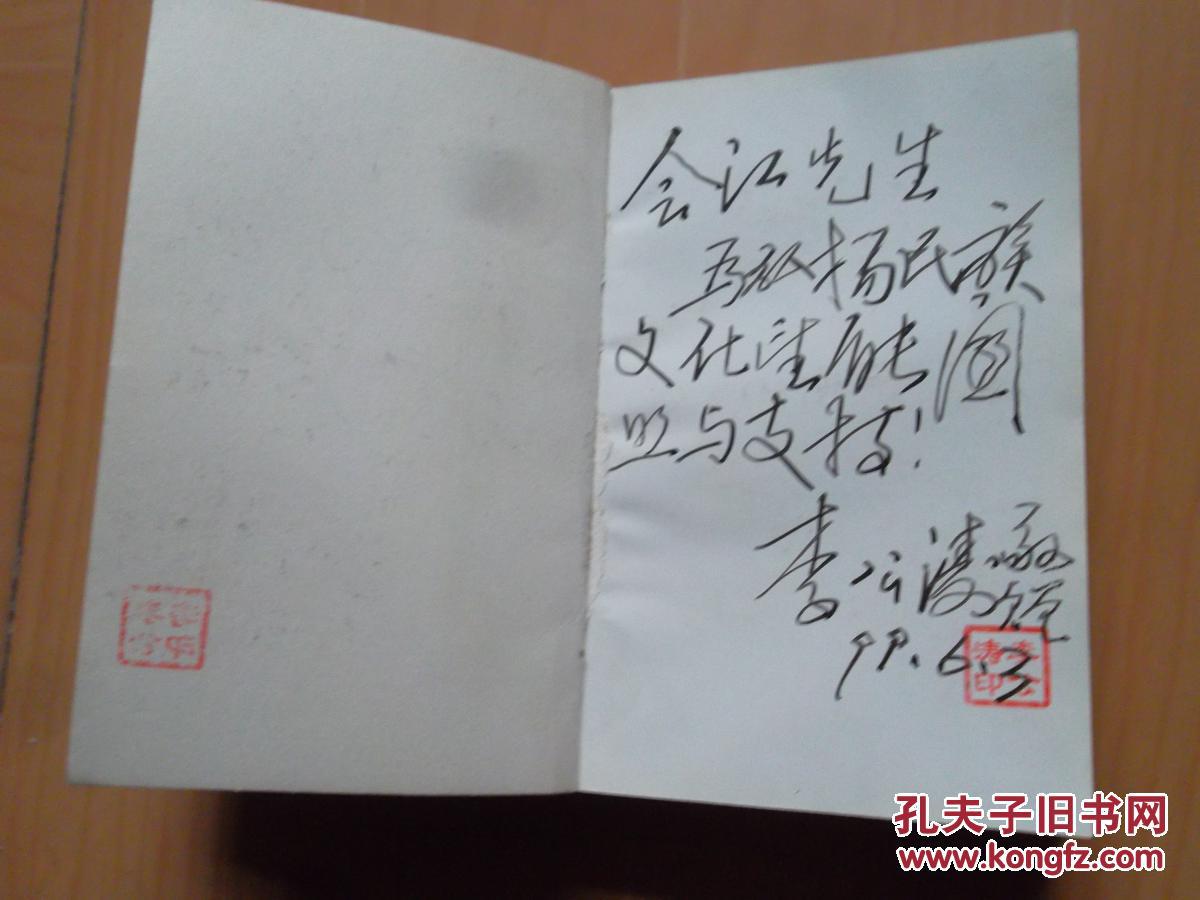 会江先生
为弘扬民族
文化望能关
照与支持!
李公涛敬
赠
99.6.3
李公涛印
孔夫子旧书网
www.kongfz.com